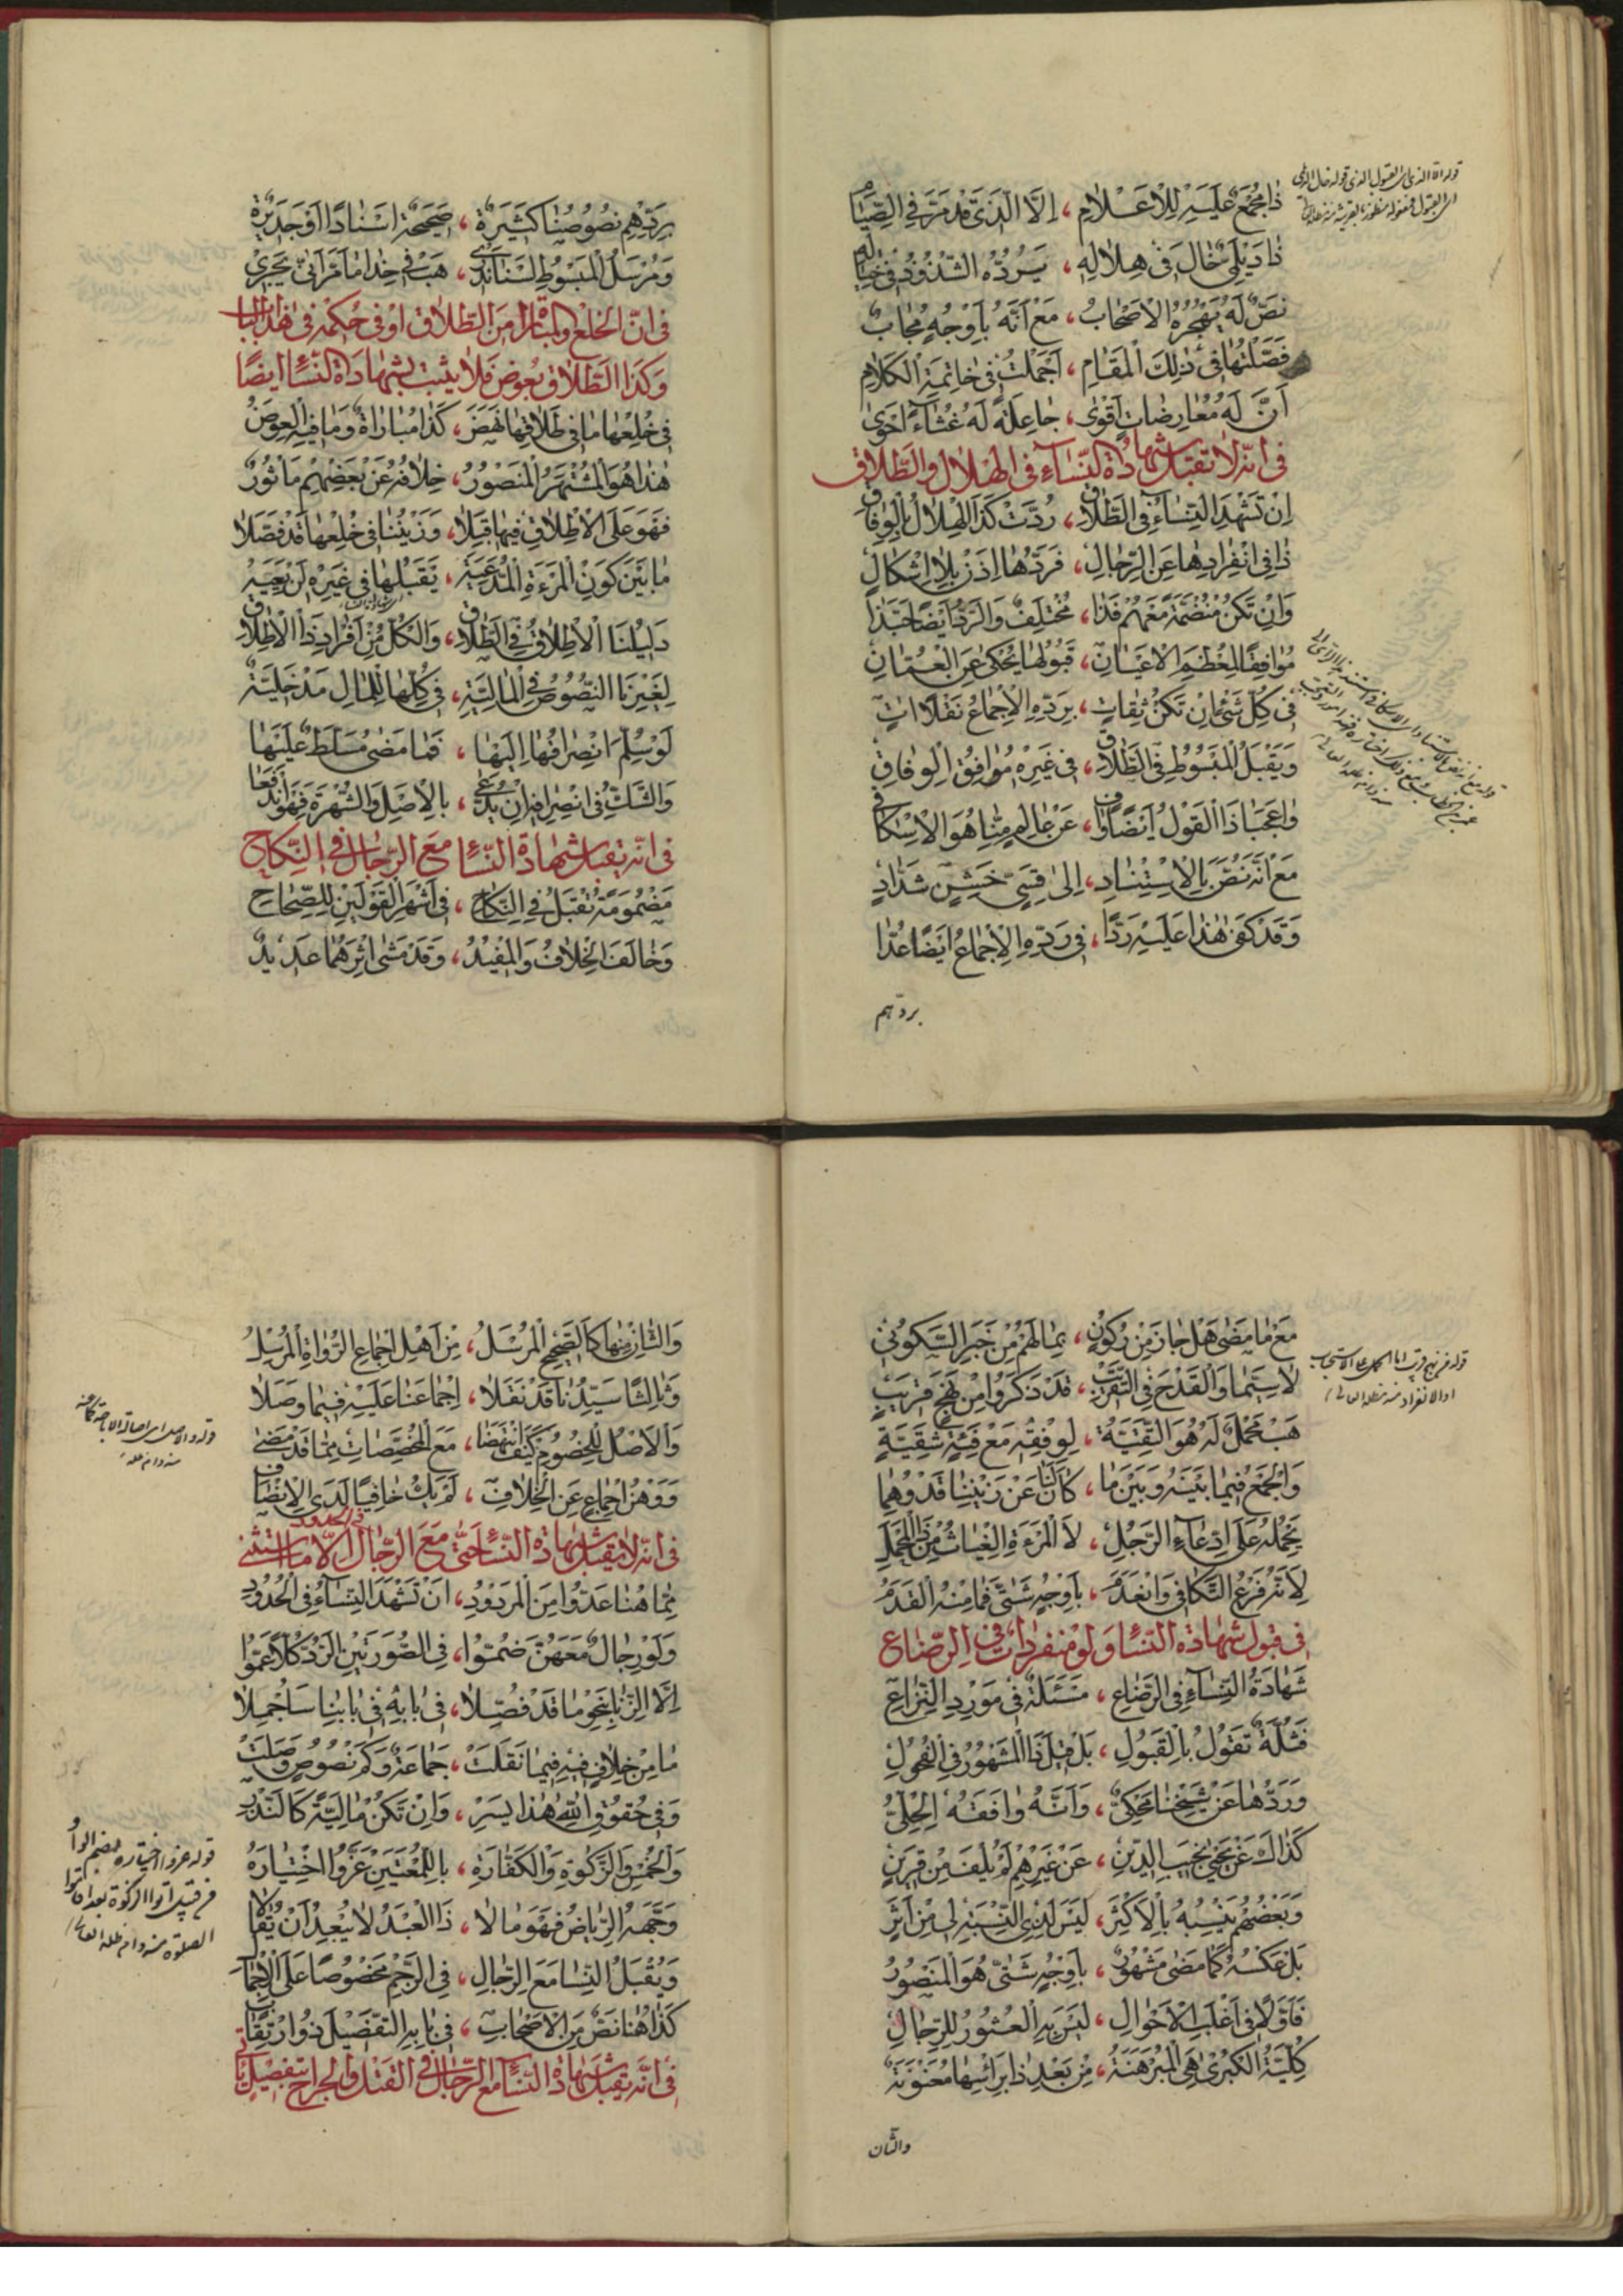 ذا مجمع عليه للأعلام ، إلا الذي قد مر في الصيام
ذا ديلمي خال في هلاله ، يرده الشذوذ في خياله
نص له يهجره الأصحاب ، مع أنه بأوجه مجاب
فصلتها في ذلك المقام ، أجملت في خاتمة الكلام
أن له معارضات أقوى ، جاعلة له غثاء أحوى
في انه لا تقبل شهادة النساء في الهلال والطلاق
إن تشهد النساء في الطلاق ، ردت كذا الهلال بالوفاق
ذا في انفرادها عن الرجال ، فردها إذن بلا إشكال
وإن تكن منضمة معهم فذا ، مختلف والرد أيضا حبذا
موافقا لمعظم الأعيان ، قبولها يحكى عن العمان
في كل شيء إن تكن ثقات ، برده الإجماع نقلا ات
ويقبل المبسوط في الطلاق ، في غيره موافق الوفاق
وا عجبا ذا القول أيضا واف ، عن عالم منا هو الإسكافي
مع أنه نص بالاستناد ، إلى قسي خشين شداد
وقد كفى هذا عليه ردا ، في رده الإجماع أيضا عدا
بردهم
بردهم نصوصنا كثيرة ، صحيحة اسنادا أو جديرة
ومرسل المبسوط لسنا ندري ، هب في خذا ما مر أنى يجري
في ان الخلع والمباراة من الطلاق او في حكمه في هذا الباب
وكذا الطلاق بعوض فلا يثبت بشهادة النساء ايضا
في خلعها ما في طلاقها نهض ، كذا مباراة وما فيه العوض
هذا هو المشتهر المنصور ، خلافه عن بعضهم مأثور
فهو على الإطلاق فيها قبلا ، وزيننا في خلعها قد فصلا
ما بين كون المرءة المدعية ، يقبلها في غيره لن يعيه
دليلنا الإطلاق في الطلاق ، والكل من أفراد ذا الإطلاق
لغيرنا النصوص في المالية ، في كلها للمال مدخلية
لو سلم انصرافها إليها ، فما مضى مسلط عليها
والشك في انصراف إن يدعى ، بالأصل والشهرة فهو اندفعا
في انه يقبل شهادة النساء مع الرجال في النكاح
مضمومة تقبل في النكاح ، في أشهر القولين للصحاح
وخالف الخلاف والمفيد ، وقد مشى اثرهما عديد
مع ما مضى هل جاز من ركون ، بما لهم من خبر السكوني
لا سيما والقدح في التقريب ، قد ذكروا من نهج قريب
هب محمل له هو التقية ، لوفقه مع فئة شقية
والجمع فيما بينه وبين ما ، كان لنا عن زيننا قد وهما
يحمله على ادعاء الرجل ، لا المرءة الغياث من ذا المحمل
لأنه فرع التكافي وانعدم ، بأوجه شتى فما منه القدم
في قبول شهادة النساء ولو منفردات في الرضاع
شهادة النساء في الرضاع ، مسئلة في مورد النزاع
فثلة تقول بالقبول ، بل قيل ذا المشهور في الفحول
وردها عن شيخنا محكي ، وأنه وافقه الحلي
كذاك عن يحيى نجيب الدين ، عن غيرهم لم يلف من قرين
وبعضهم ينسبه بالأكثر ، ليس لذي النسبة لي من أثر
بل عكسه كما مضى مشهور ، بأوجه شتى هو المنصور
فأولا في أغلب الأحوال ، ليس به العثور للرجال
كلية الكبرى هي المبرهنة ، من بعد ذا برأسها معنونة
والثان
والثان منها كالصحيح المرسل ، من أهل إجماع الرواة المرسل
وثالثا سيدنا قد نقلا ، إجماعنا عليه فيما وصلا
والأصل للخصوم كيف انتهضا ، مع المخصصات مما قد مضى
ووهن إجماع عن الخلاف ، لم يك خافيا لدى الإنصاف
في انه لا يقبل شهادة النساء حتى مع الرجال في الحدود الا ما استثنى
مما هنا عدوا من المردود ، أن تشهد النساء في الحدود
ولو رجال معهن ضموا ، في الصورتين الرد كلا عموا
إلا الزنا بنحو ما قد فصلا ، في بابه في بابنا سأجملا
ما من خلاف فيه فيما نقلت ، جماعة وكم نصوص وصلت
وفي حقوق الله هذا يسر ، وإن تكن مالية كالنذر
والخمس والزكوة والكفارة ، باللمعتين عزوا اختياره
وجهه الرياض فهو مالا ، ذا العبد لا يبعد أن يقالا
ويقبل النسا مع الرجال ، في الرجم مخصوصا على الإجمال
كذا هنا نص من الأصحاب ، في بابه التفصيل ذو ارتقاب
في انه يقبل شهادة النساء مع الرجال في القتل والجراح بتفصيل
قوله والاصل اى اصالة الاباحة
قوله عزوا اختياره بضم الواو
الصلوة منه دام ظله العالى